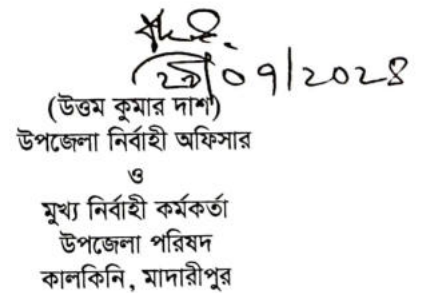 ০৭/২০২৪
(উত্তম কুমার দাশ)
উপজেলা নির্বাহী অফিসার
ও
মুখ্য নির্বাহী কর্মকর্তা
উপজেলা পরিষদ
কালকিনি, মাদারীপুর